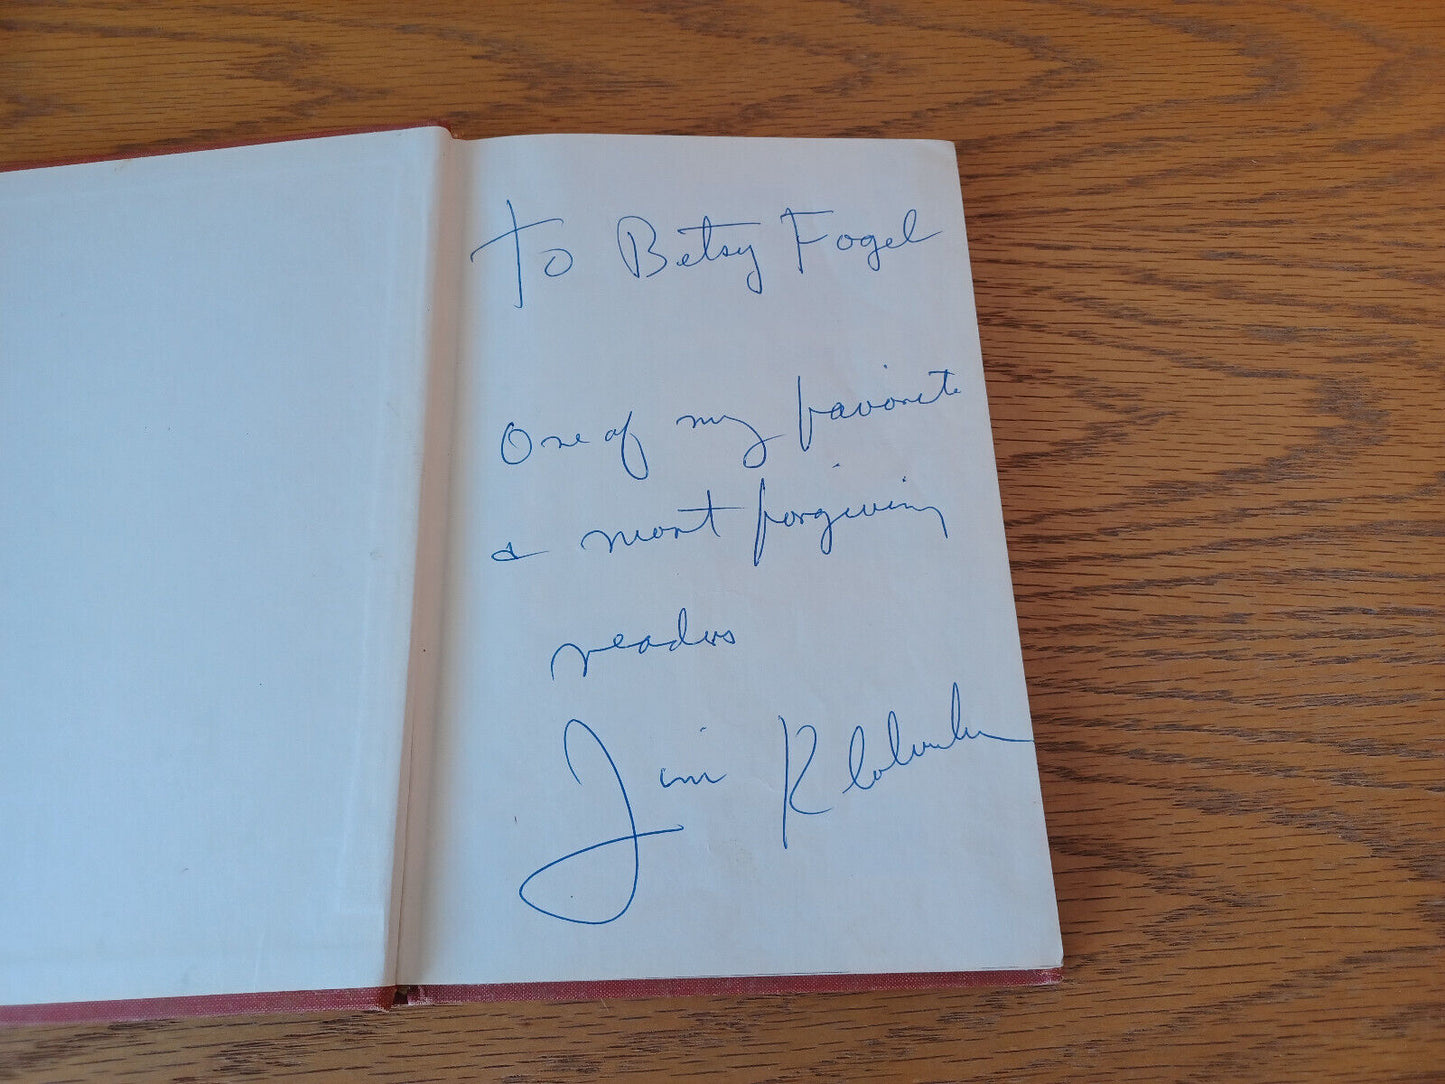 To Betsy Fogel
One of my favorite
& most forgiving
readers
Jim Klobuchar